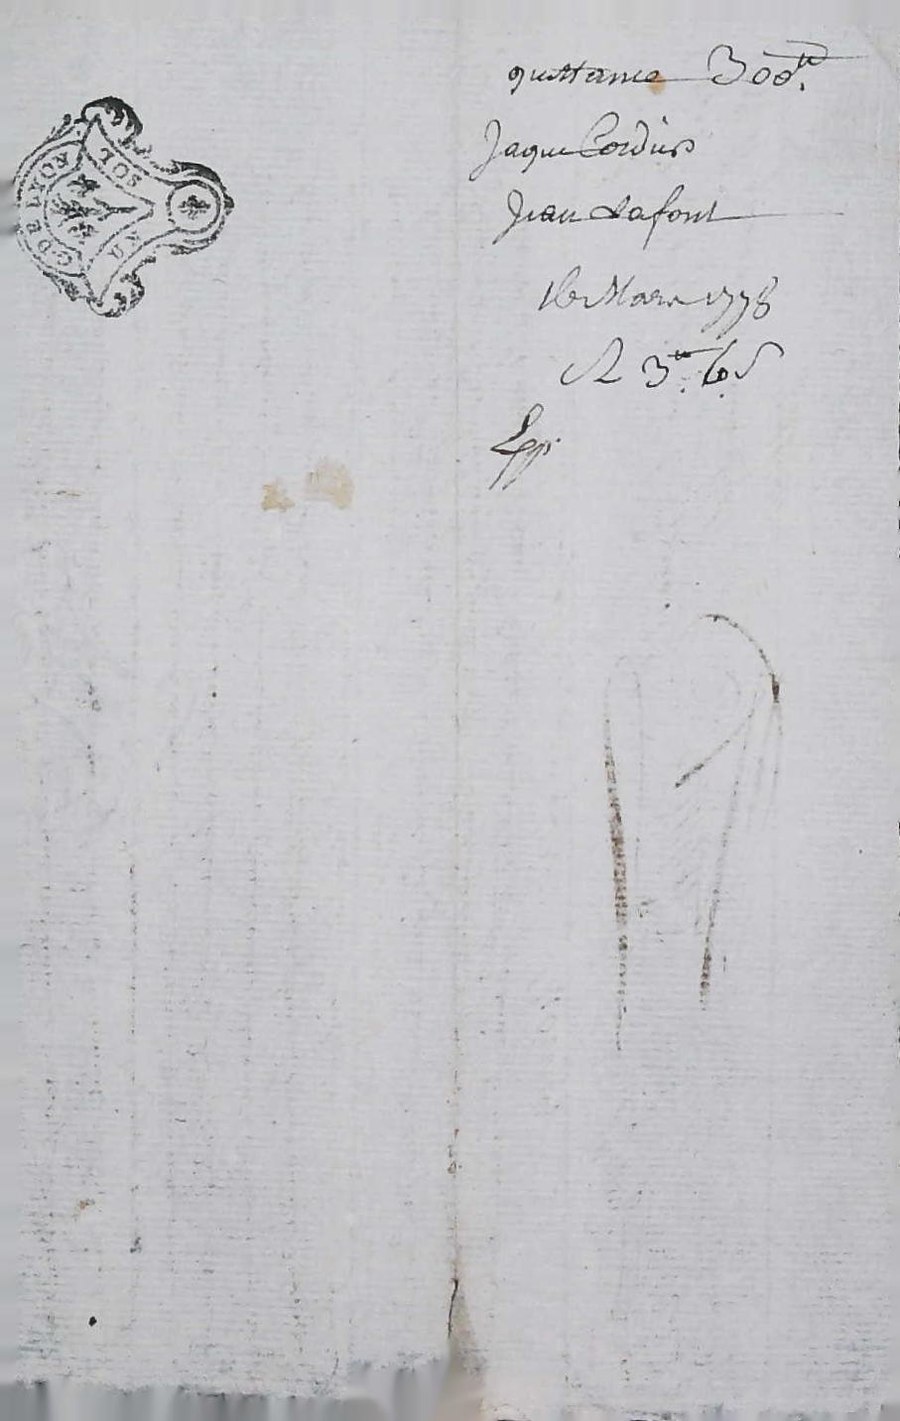 G. DE LYON
UN SOL
quittance 300ᵗᵗ.
Jaque Cordier
Jean Lafont
16 Mars 1778
R 3ᵗᵗ. 6. s